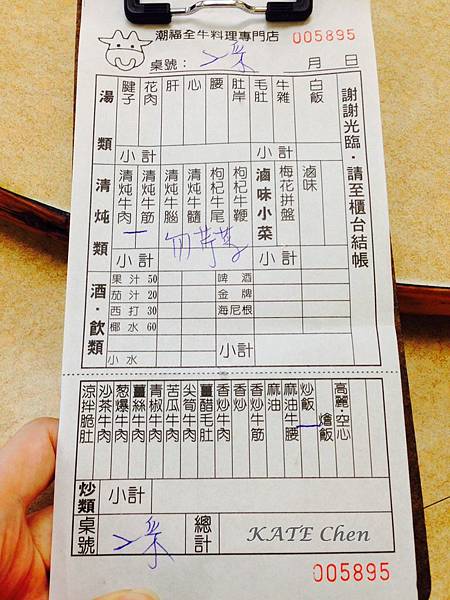 潮福全牛料理專門店
005895
桌號：
月 日
謝謝光臨・請至櫃台結帳
湯類
腱子
花肉
肝
心
腰
肚岸
毛肚
牛雜
白飯
小計
清炖類
清炖牛肉 一
清炖牛筋
清炖牛腦
清炖牛髓
枸杞牛尾
枸杞牛鞭
滷味小菜
梅花拼盤
滷味
小計
小計
酒・飲類
果汁 50
茄汁 20
西打 30
椰水 60
小水
啤酒
金牌
海尼根
小計
涼拌脆肚
沙茶牛肉
葱爆牛肉
薑絲牛肉
青椒牛肉
苦瓜牛肉
尖筍牛肉
薑醋毛肚
香炒牛肉
香炒
香炒牛筋
麻油
麻油牛腰
炒飯 一
燴飯
高麗・空心
炒類
小計
桌號
總計
KATE Chen
005895